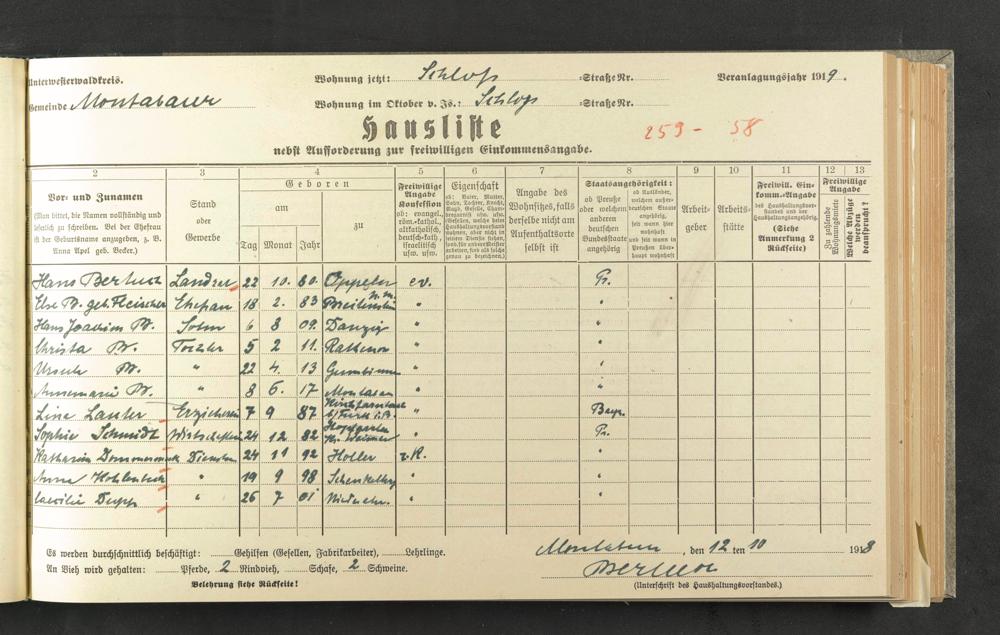 Unterwesterwaldkreis. Wohnung jetzt: Schloß =Straße Nr. Veranlagungsjahr 1919.
Gemeinde Montabaur Wohnung im Oktober v. Js.: Schloß =Straße Nr.
Hausliste 259 - 58
nebst Aufforderung zur freiwilligen Einkommensangabe.
2 3 4 5 6 7 8 9 10 11 12 13
Vor- und Zunamen
(Man bittet, die Namen vollständig und
leserlich zu schreiben. Bei der Ehefrau
ist der Geburtsname anzugeben, z. B.
Anna Apel geb. Becker.)
Stand
oder
Gewerbe
Geboren
am zu
Tag Monat Jahr
Freiwillige
Angabe
Konfession
ob: evangel.,
röm.-kathol.,
altkatholisch,
deutsch-kath.,
israelitisch
usw. usw.
Eigenschaft
ob: Vater, Mutter,
Sohn, Tochter, Knecht,
Angabe des
Wohnsitzes, falls
derselbe nicht am
Aufenthaltsorte
selbst ist
Staatsangehörigkeit:
ob Preuße
oder welchem
anderen
deutschen
Bundesstaate
angehörig
ob Ausländer,
welchem außer-
deutschen Staate
angehörig,
seit wann hier
wohnhaft
und seit wann in
Preußen über-
haupt wohnhaft
Arbeit-
geber
Arbeits-
stätte
Freiwill. Ein-
komm.-Angabe
des Haushaltungsvor-
standes und der
Haushaltungsangehörig.
(Siehe
Anmerkung 2
Rückseite)
Freiwillige
Angabe
Zu zahlende
Wohnungsmiete
Welche Abzüge
werden
beansprucht?
Hans Bertuch Landrat 22 10. 80. Oppeln ev. Pr.
Else B. geb. Fleischer Ehefrau 18 2. 83 Breitenstein N. M. " "
Hans Joachim B. Sohn 6 8 09. Danzig " "
Christa B. Tochter 5 2 11. Rathenow " "
Ursula B. " 22 4. 13 Gumbinnen " "
Annemarie B. " 8 6. 17 Montabaur " "
Line Lauter Erzieherin 7 9 87 " Bayr.
Sophie Schmidt 24 12 82 " Pr.
Katharina Dienstm. 24 11 92 Holler r. K. "
Anna " 19 9 98 " "
Caecilie " 26 7 01 Niederelb. " "
Es werden durchschnittlich beschäftigt: Gehilfen (Gesellen, Fabrikarbeiter), Lehrlinge.
An Vieh wird gehalten: Pferde, 2 Rindvieh, Schafe, 2 Schweine.
Belehrung siehe Rückseite!
Montabaur, den 12 ten 10 1918
Bertuch
(Unterschrift des Haushaltungsvorstandes.)